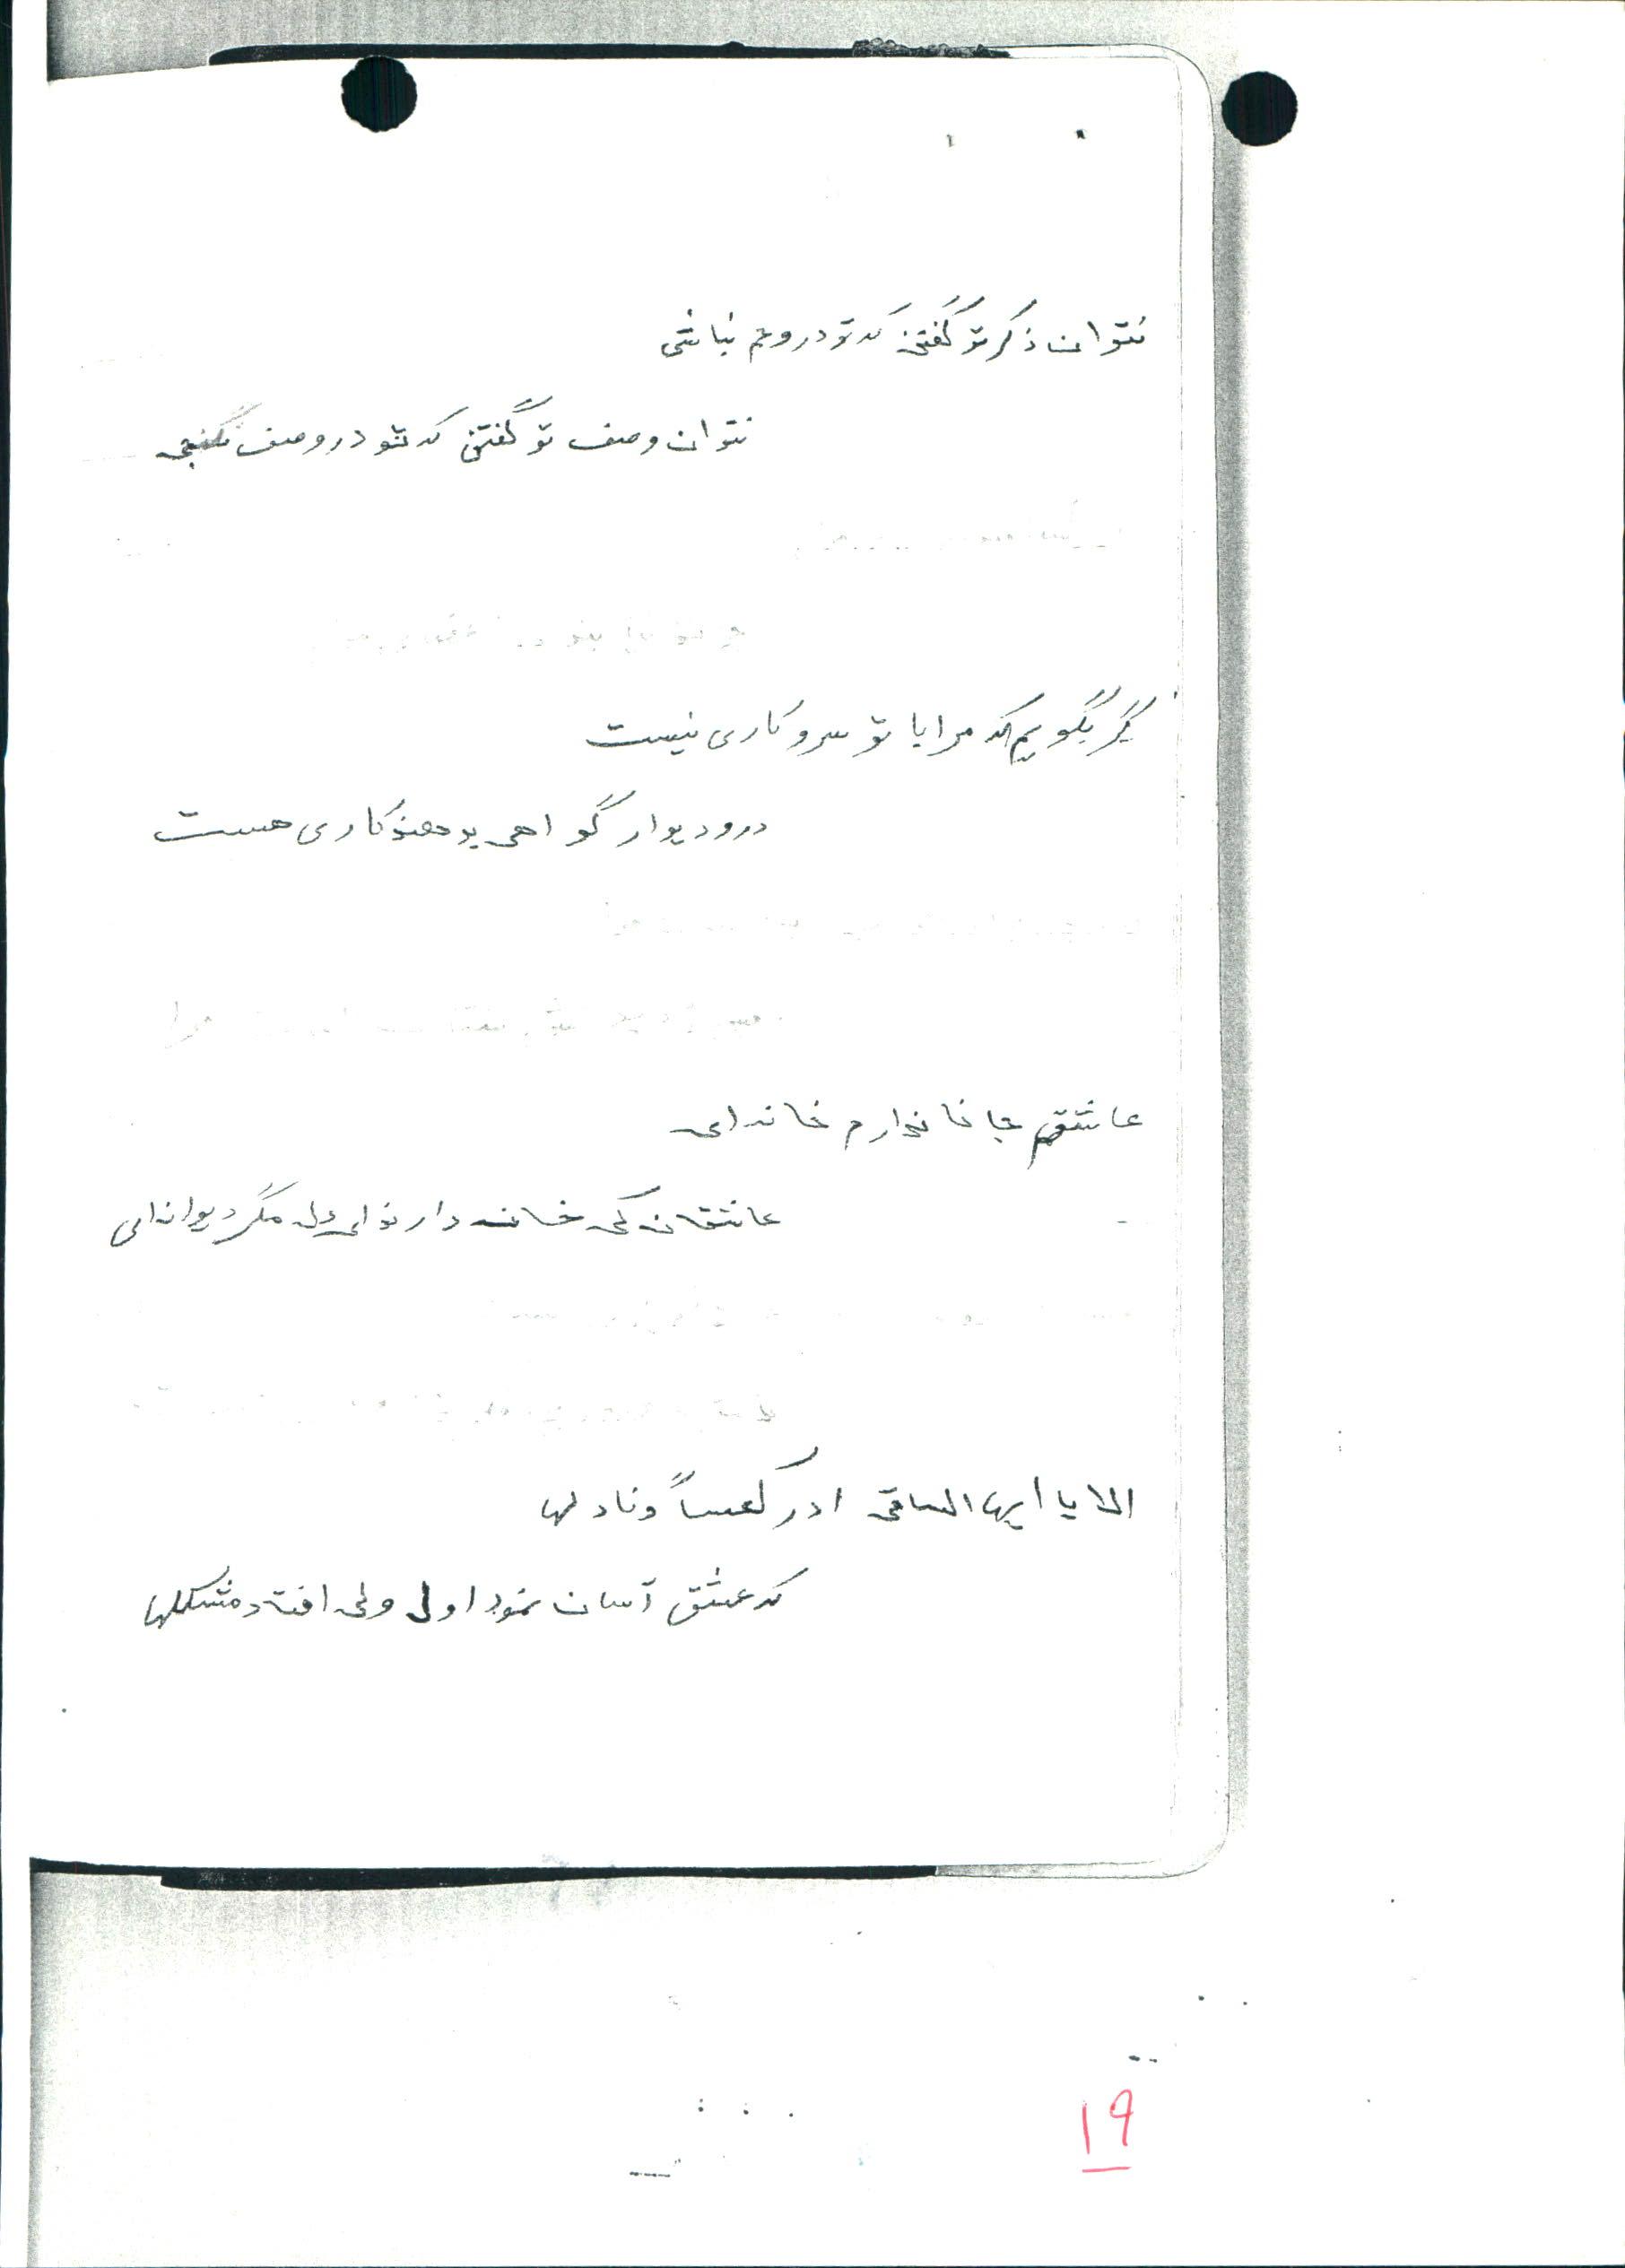 نتوان ذکر تو گفتن که تو در وهم نباشی
نتوان وصف تو گفتن که تو در وصف نگنجی
گر بگویم که مرا با تو سر و کاری نیست
در و دیوار گواهی بودهند کاری هست
عاشقم جانا ندارم خانه‌ای
عاشقان کی خانه دارند ای دل مگر دیوانه‌ای
الا یا ایها الساقی ادر کعساً و نادلها
که عشق آسان نمود اول ولی افتد مشکلها
۱۹